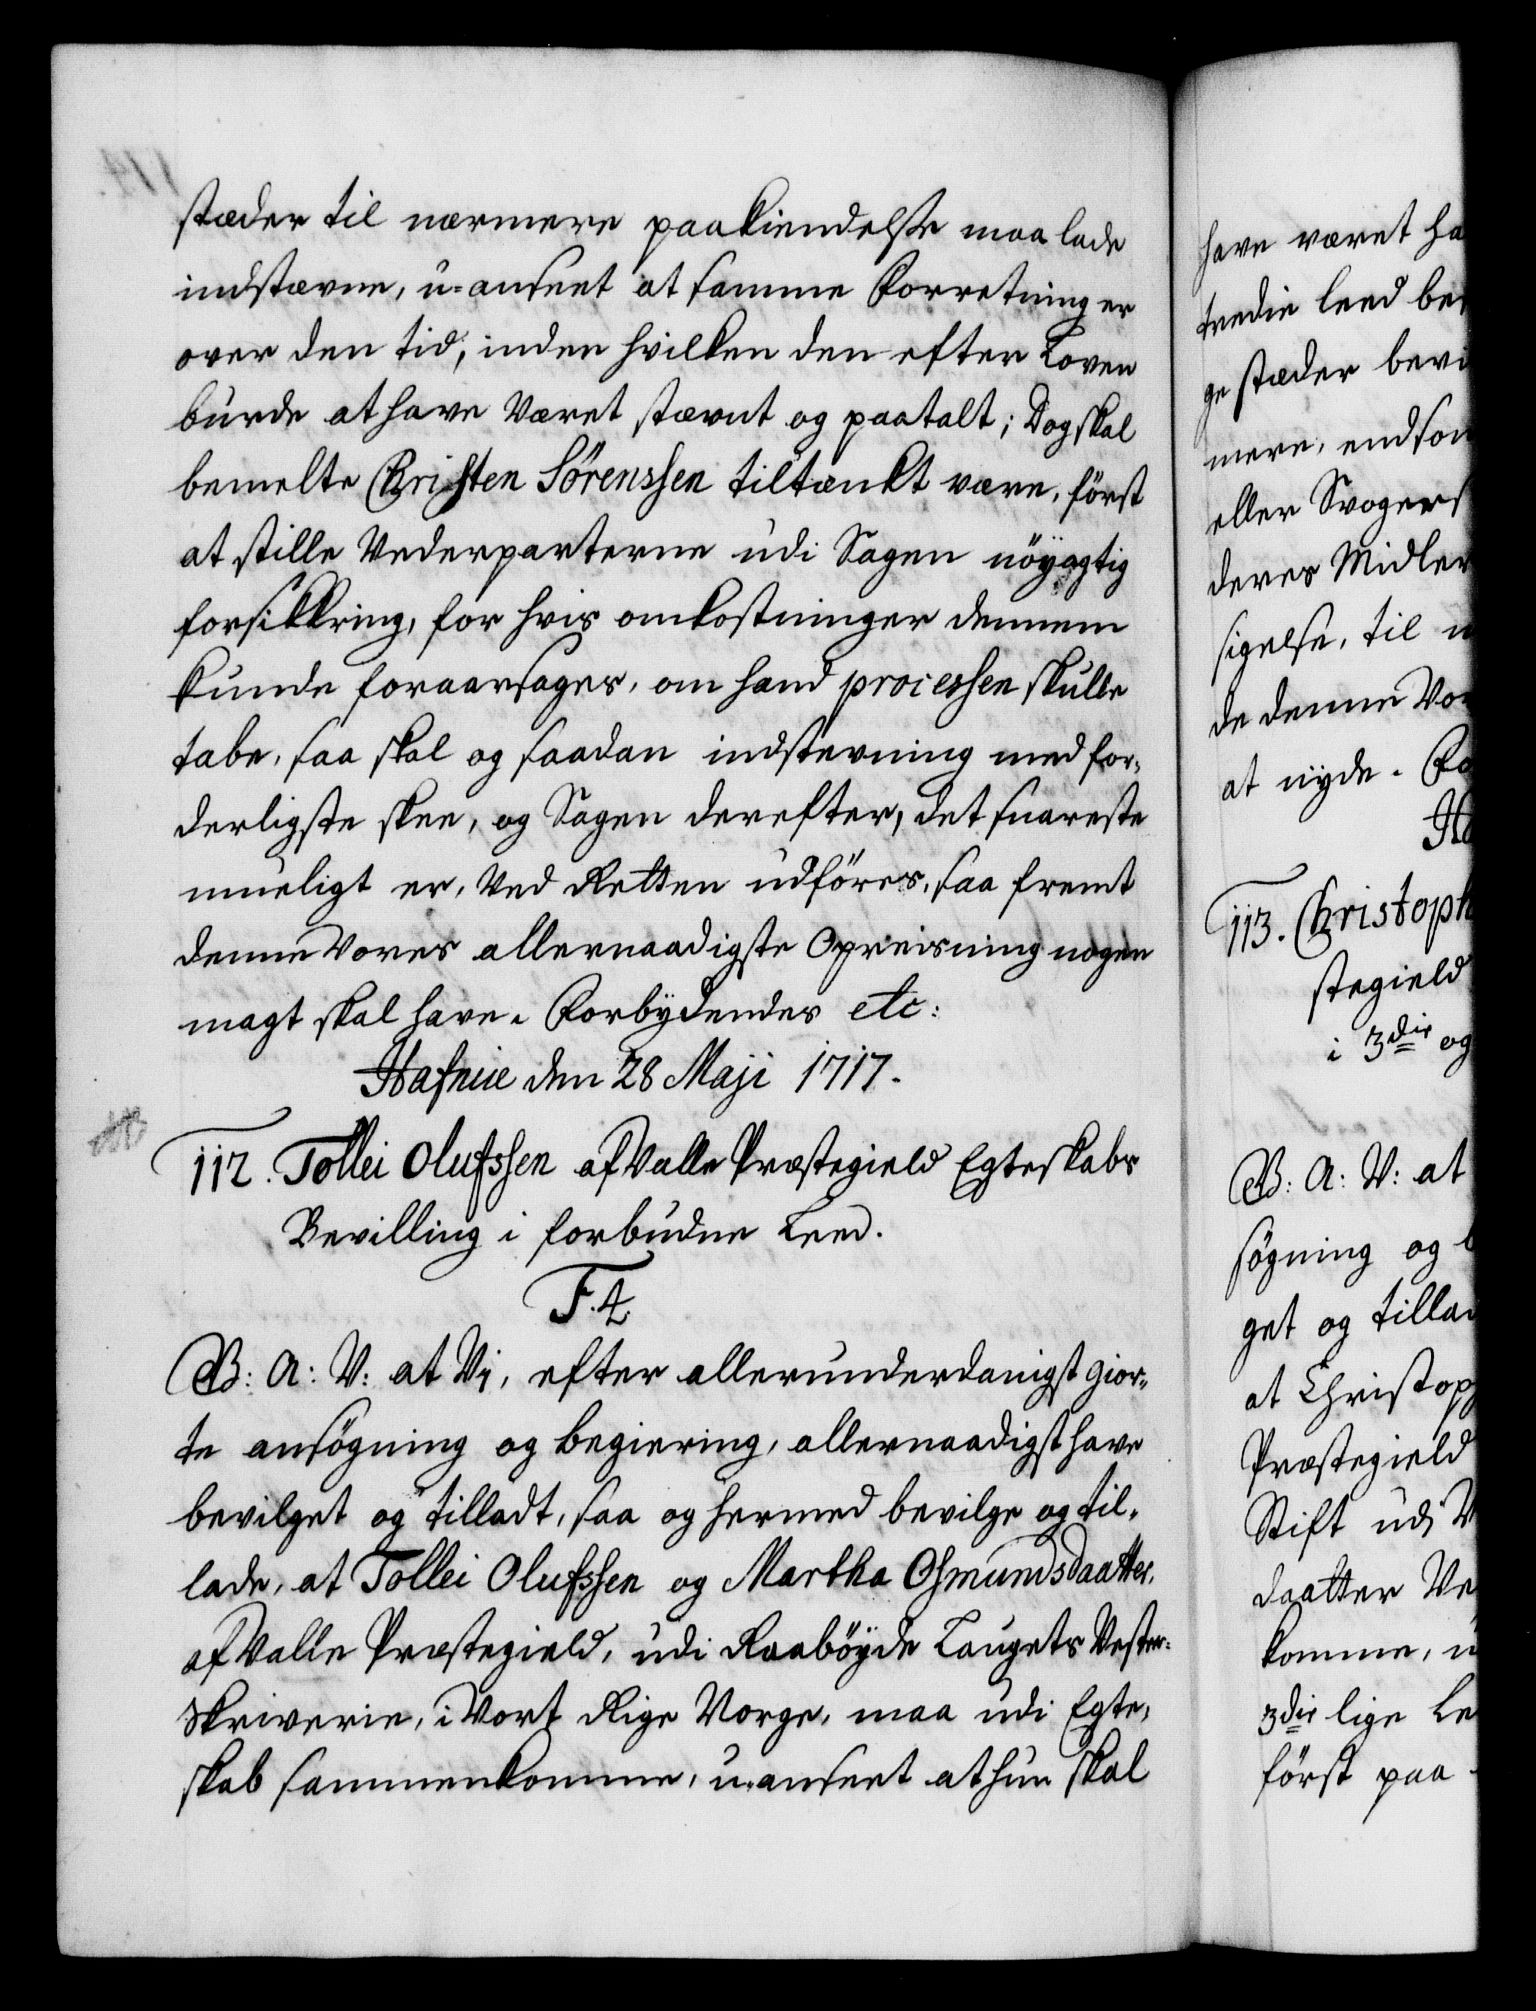 stæder til nærmere paakiendelse maa lade
indstævne, u-anseet at samme Forretning er
over den tid, inden hvilken den efter Loven
burde at have Været stævnt og paatalt; Dog skal
bemelte Christen Sörenssen tiltænkt være, först
at stille Vederparterne udi Sagen nöyagtig
forsikkring, for hvis omkostninger dennem
kunde foraarsages, om hand processen skulle
tabe, saa skal og saadan indstevning med for-
derligste skee, og Sagen derefter, det snareste
mueligt er, Ved Retten udföres, saa fremt
denne Vores allernaadigste Opreisning nogen
magt skal have. Forbydendes etc:
Hafniæ den 28 Maji 1717.
112. Tollei Olufssen af Valle Præstegield Egteskabs
Bevilling i forbudne Leed.
F. 4.
G. B: A: V: at Vi, efter allerunderdanigst gior-
te ansögning og begiering, allernaadigst have
bevilget og tilladt, saa og hermed bevilge og til-
lade, at Tollei Olufssen og Martha Osmundsdaatter,
af Valle Præstegield, udi Raabøyde Laugets Vester-
Skriverie, i Vort Rige Norge, maa udi Egte-
skab sammenkomme, u-anseet at hun skal
have været ha
tredie leed be
ge stæder bevi
mere, endson
eller Svogers
deres Midler
sigelse, til
de denne Vo
at nyde. Fo
Ha
113. Christoph
stegield
i 3die og
B: A: V: at
søgning og b
get og tilla
at Christoph
Præstegield
Stift udi V
daatter Ve
komme, u
3die lige Le
först paa